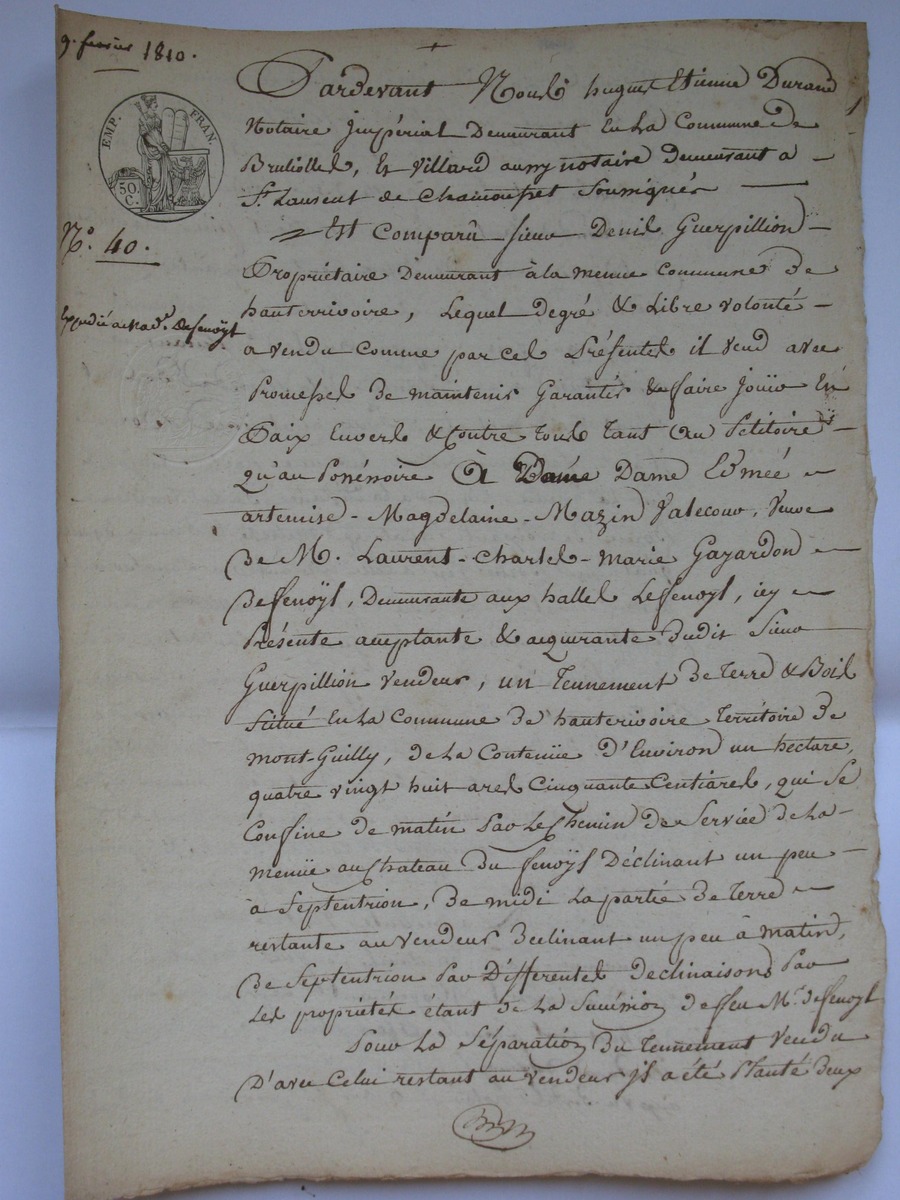 9. fevrier 1810.
EMP. FRAN.
50. C.
N.º 40.
Expédié a Mad.e de fenoÿl
Pardevant Nous hugues Etienne Durand
Notaire Impérial Demeurant En La Commune de
Brulioles, Et Villard aussy notaire demeurant a
St. Laurent de Chamousset Soussignés
Est Comparû sieur Denis Guerpillion
Propriétaire Demeurant à la meme Commune de
hauterrivoire, Lequel degré & Libre volonté
a vendu Comme par ces Présentes il vend avec
Promesses de maintenir Garantir & faire Jouïr En
Paix Envers & Contre tous tant au Pétitoire
qu'au Possessoire A Dame Edmeé
artemise - Magdelaine - Mazin Valecour, Veuve
De M. Laurent - Charles - Marie Gayardon
De fenoÿl, Demeurante aux halles Le fenoyl, icy
Présente acceptante & acquirante Dudit Sieur
Guerpillion Vendeur, un Tennement De Terre & Bois
Situé En La Commune De hauterivoire Territoire De
mont-Guilly, de La Contenüe D'Environ un hectare,
quatre vingt huit ares Cinquante Centiares, qui Se
Confine de matin Par Le Chemin de Servie de La
menüe au Chateau Du fenoÿl Déclinant un peu
à Septentrion, De midi La partie De Terre
restante au Vendeur Declinant un peu à matin,
De Septentrion Par Differentes declinaisons Par
Les propriétés étant de La Succession de feu Mr. De fenoyl
Pour La Séparation Du Tennement Vendu
D'avec Celui restant au Vendeur jl a été Planté deux